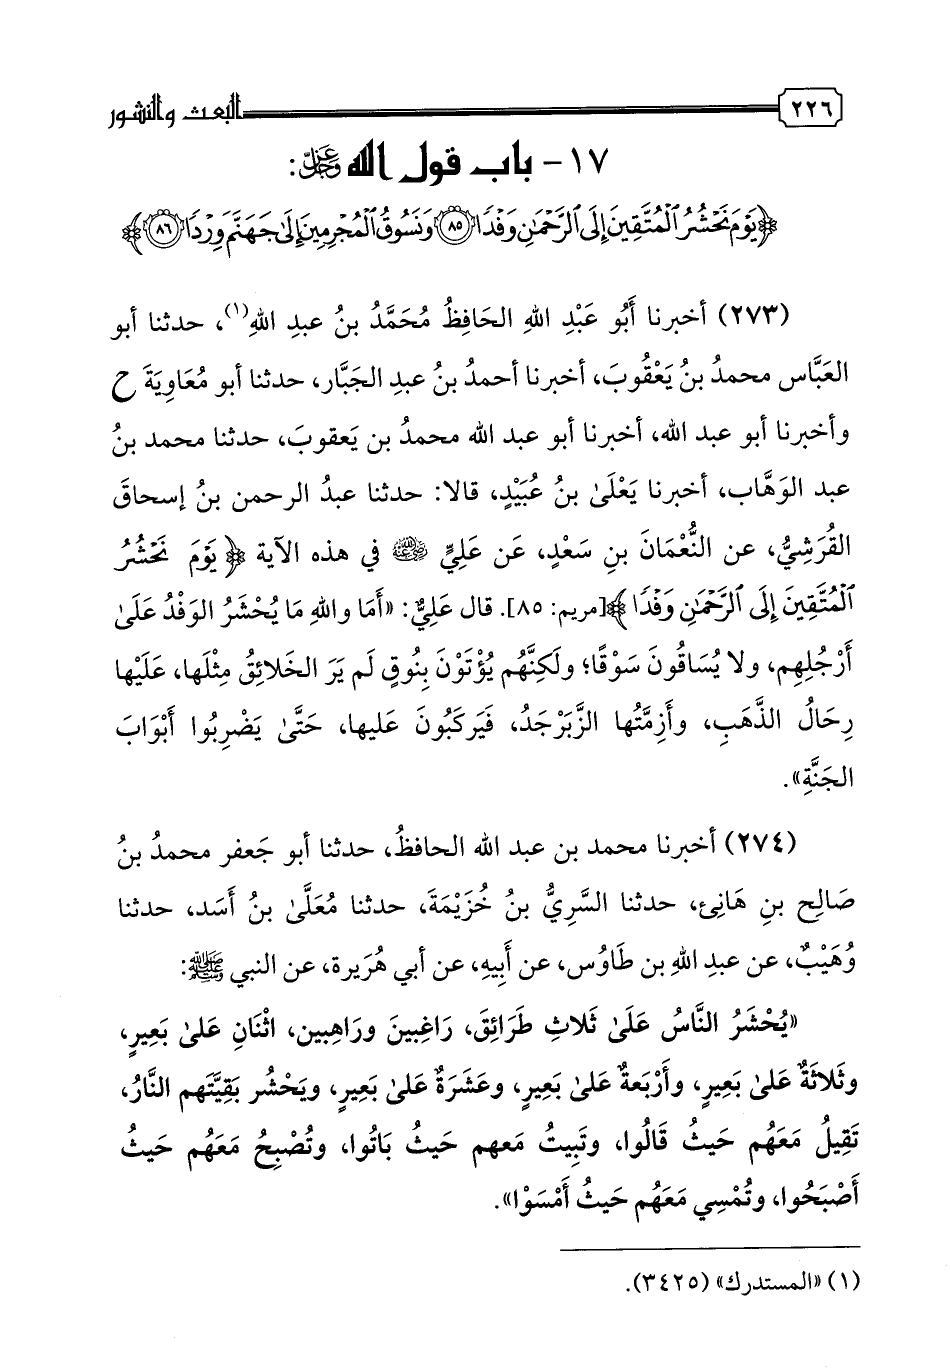 ٢٢٦ البعث والنشور
١٧- باب قول الله ﷿:
﴿يَوْمَ نَحْشُرُ الْمُتَّقِينَ إِلَى الرَّحْمَٰنِ وَفْدًا ۝٨٥ وَنَسُوقُ الْمُجْرِمِينَ إِلَىٰ جَهَنَّمَ وِرْدًا ۝٨٦﴾
(٢٧٣) أخبرنا أَبُو عَبْدِ اللهِ الحَافِظُ مُحَمَّدُ بنُ عبدِ اللهِ(١)، حدثنا أبو
العَبَّاس محمدُ بنُ يَعْقُوبَ، أخبرنا أحمدُ بنُ عبدِ الجَبَّار، حدثنا أبو مُعَاوِيَةَ ح
وأخبرنا أبو عبد الله، أخبرنا أبو عبد الله محمدُ بن يَعقوبَ، حدثنا محمد بنُ
عبد الوَهَّاب، أخبرنا يَعْلَىٰ بنُ عُبَيْدٍ، قالا: حدثنا عبدُ الرحمن بنُ إسحاقَ
القُرَشِيُّ، عن النُّعْمَانَ بنِ سَعْدٍ، عَن عَلِيٍّ ﵁ في هذه الآية ﴿يَوْمَ نَحْشُرُ
الْمُتَّقِينَ إِلَى الرَّحْمَٰنِ وَفْدًا﴾[مريم: ٨٥]. قال عَلِيٌّ: «أَمَا واللهِ مَا يُحْشَرُ الوَفْدُ عَلَىٰ
أَرْجُلِهِم، ولا يُسَاقُونَ سَوْقًا؛ ولَكِنَّهُم يُؤْتَوْنَ بِنُوقٍ لَم يَرَ الخَلائِقُ مِثْلَها، عَلَيْها
رِحَالُ الذَّهَبِ، وأَزِمَّتُها الزَّبَرْجَدُ، فَيَركَبُونَ عَليها، حَتَّىٰ يَضْرِبُوا أَبْوَابَ
الجَنَّةِ».
(٢٧٤) أخبرنا محمد بن عبد الله الحافظُ، حدثنا أبو جَعفر محمدُ بنُ
صَالِح بنِ هَانِئ، حدثنا السَّرِيُّ بنُ خُزَيْمَةَ، حدثنا مُعَلَّىٰ بنُ أَسَد، حدثنا
وُهَيْبٌ، عن عبدِ اللهِ بن طَاوُس، عن أَبِيهِ، عن أبي هُرَيرة، عن النبي ﷺ:
«يُحْشَرُ النَّاسُ عَلَىٰ ثَلاثِ طَرَائِقَ، رَاغِبينَ ورَاهِبين، اثْنَانِ عَلىٰ بَعِيرٍ،
وثَلاثَةٌ عَلىٰ بَعِيرٍ، وأَرْبَعةٌ عَلىٰ بَعِيرٍ، وعَشَرَةٌ عَلىٰ بَعِيرٍ، ويَحْشُر بَقِيَّتَهم النَّارُ،
تَقِيلُ مَعَهُم حَيثُ قَالُوا، وتَبِيتُ مَعهم حَيثُ بَاتُوا، وتُصْبِحُ مَعَهُم حَيثُ
أَصْبَحُوا، وتُمْسِي مَعَهُم حَيثُ أَمْسَوْا».
(١) «المستدرك» (٣٤٢٥).